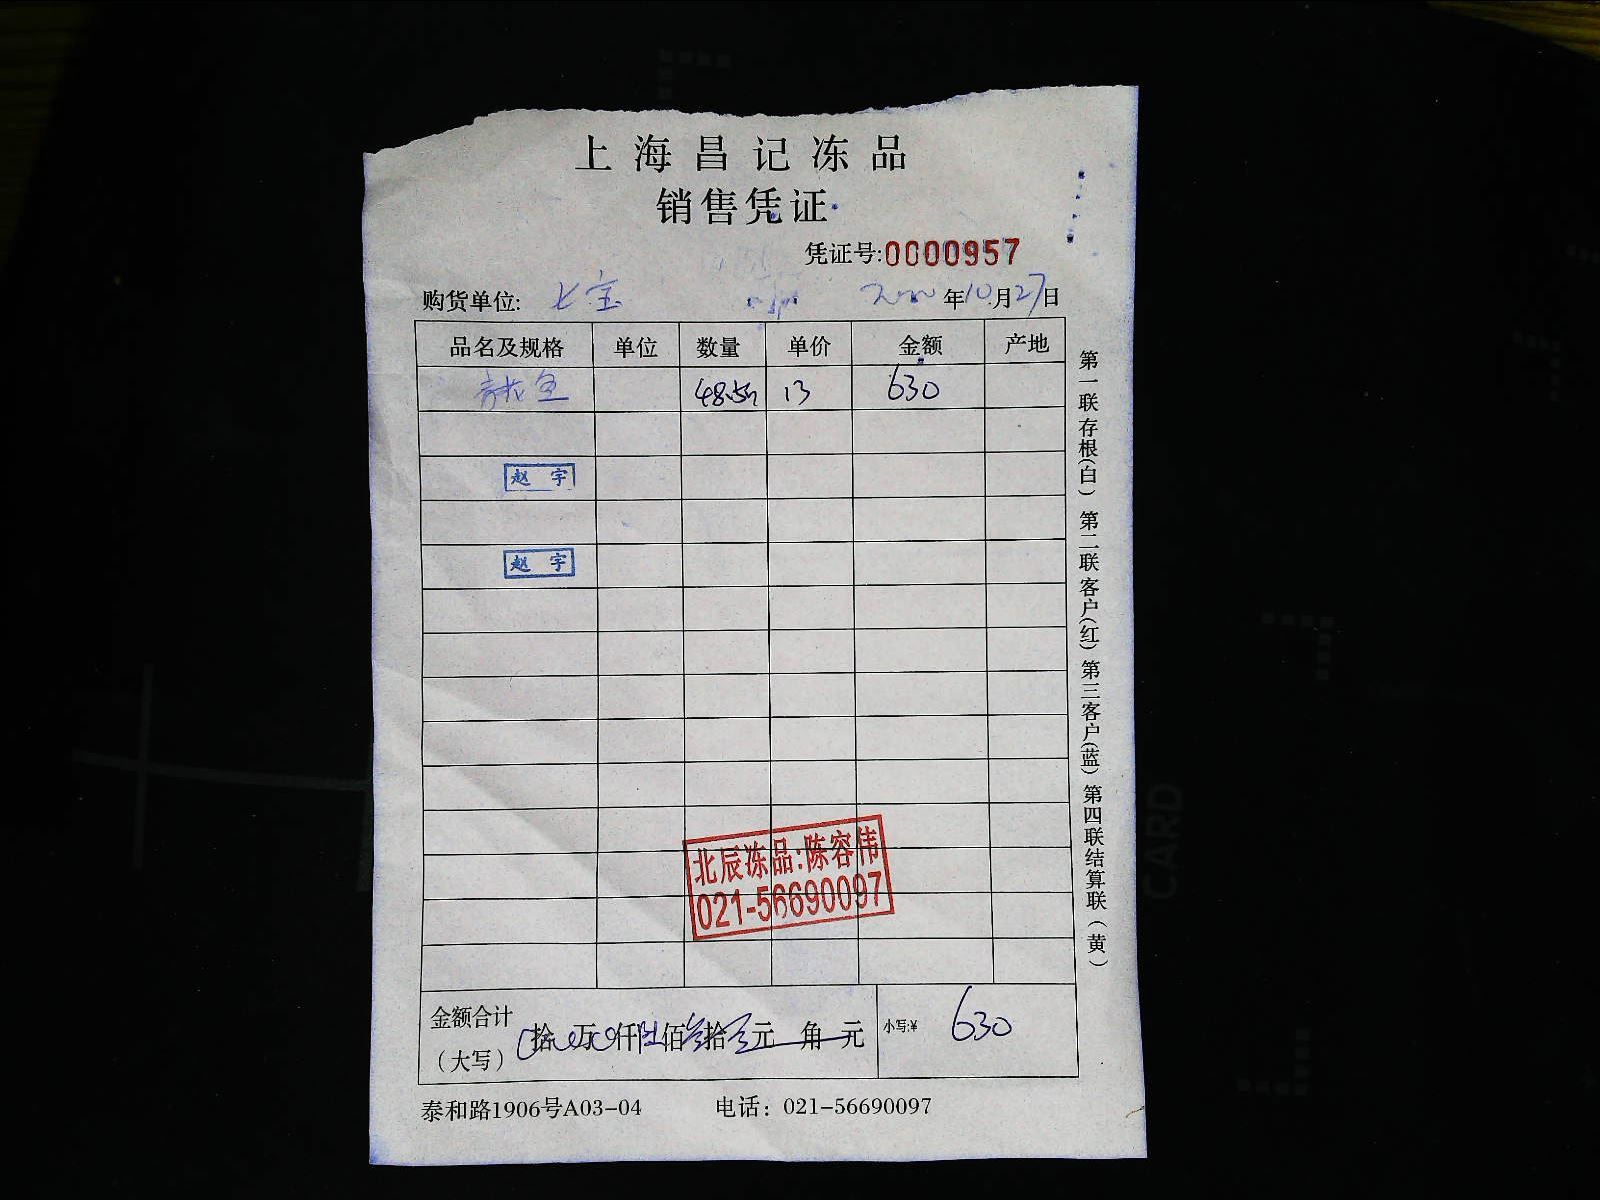 上海昌记冻品
销售凭证
凭证号:0000957
购货单位: 七宝 年10月27日
品名及规格 单位 数量 单价 金额 产地
鱼 13 630
赵宇
赵宇
北辰冻品:陈容伟
021-56690097
金额合计
(大写) 拾 万 仟陆佰叁拾元 角 元 小写:¥ 630
泰和路1906号A03-04 电话: 021-56690097
第一联存根(白) 第二联客户(红) 第三客户(蓝) 第四联结算联(黄)
CARD